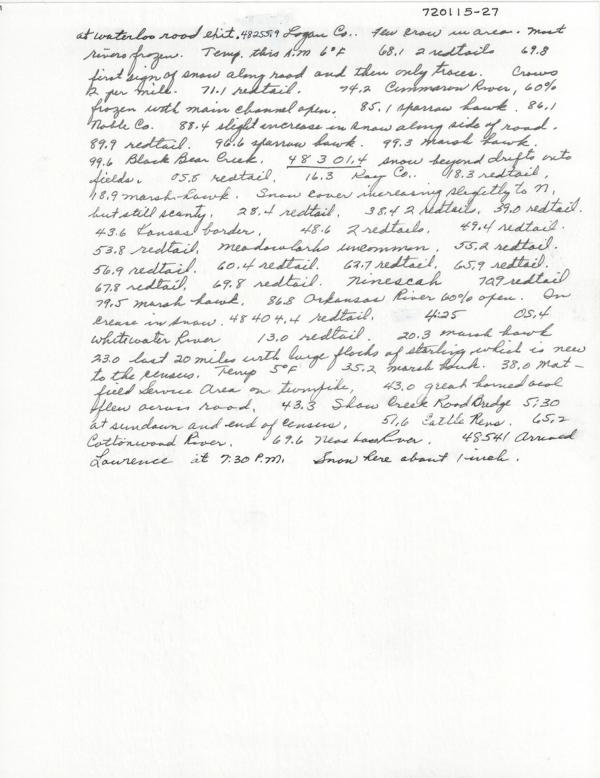 720115-27
at waterloo road exit. 48255.9 Logan Co.. Few crow in area. Most
rivers frozen. Temp. this A.M 6°F 68.1 2 redtails 69.8
first sign of snow along road and then only traces. Crows
12 per mile. 71.1 redtail. 74.2 Cimmaron River, 60%
frozen with main channel open. 85.1 sparrow hawk. 86.1
Noble Co. 88.4 slight increase in snow along side of road.
89.9 redtail. 96.6 sparrow hawk. 99.3 marsh hawk.
99.6 Black Bear Creek. 48301.4 snow beyond drifts onto
fields. 05.5 redtail. 16.3 Kay Co. 18.3 redtail,
18.9 marsh-hawk. Snow cover increasing slightly to N,
but still scanty. 28.4 redtail, 38.4 2 redtails, 39.0 redtail.
43.6 Kansas border, 48.6 2 redtails, 49.4 redtail.
53.8 redtail, meadowlarks uncommon, 55.2 redtail.
56.9 redtail. 60.4 redtail. 62.7 redtail, 65.9 redtail.
67.8 redtail, 69.8 redtail. Ninescah 72.9 redtail
79.5 marsh hawk, 86.8 Arkansas River 60% open. In
crease in snow. 48404.4 redtail. 4:25 05.4
Whitewater River 13.0 redtail. 20.3 marsh hawk
23.0 last 20 miles with large flocks of starling which is new
to the census. Temp 5°F 35.2 marsh hawk. 38.0 Mat-
field Service Area on turnpike, 43.0 great horned owl
flew across road, 43.3 Shaw Creek Road Bridge 5:30
at sundown and end of census, 51.6 Cattle Pens. 65.2
Cottonwood River. 69.6 Neosho River. 48541 Arrived
Lawrence at 7:30 P.M. Snow here about 1-inch.